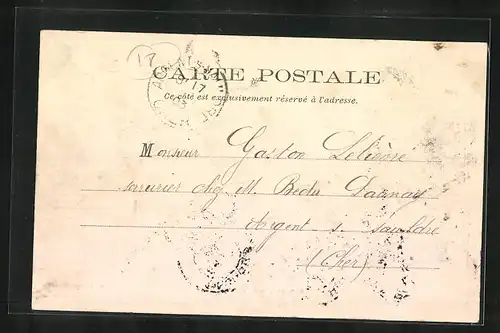 17
CARTE POSTALE
Ce côté est exclusivement réservé à l'adresse.
Monsieur Gaston Lelièvre
serrurier chez M. Beda Darnay
Argent s. Sauldre
(Cher)